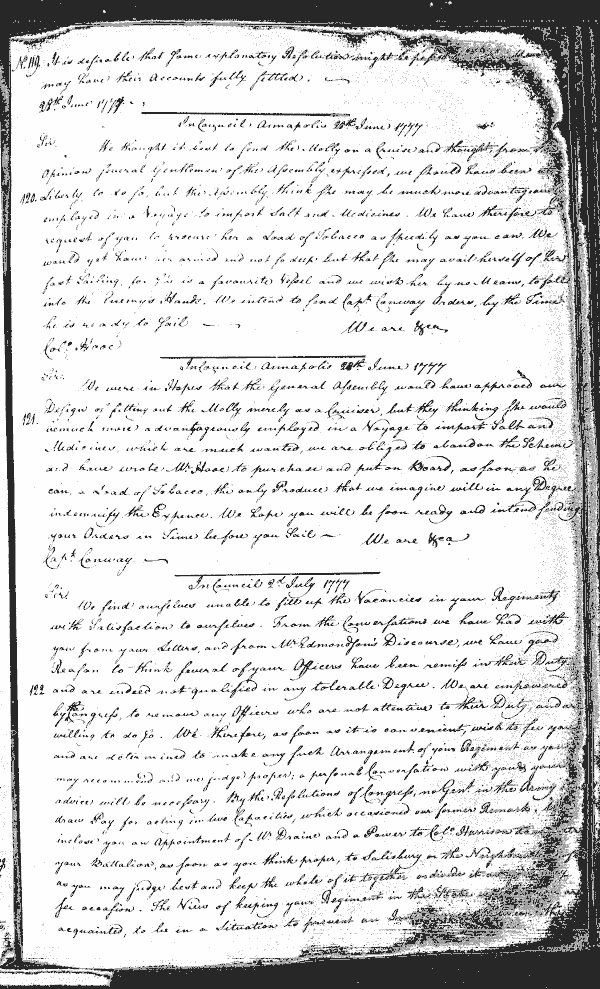 No. 119. It is desirable that some explanatory Resolution might be passed
may have their Accounts fully settled.
28th June 1777.
In Council Annapolis 28th June 1777
Sir.
We thought it best to send the Molly on a Cruise and thought, from the
Opinion several Gentlemen of the Assembly expressed, we should have been at
120. Liberty to do so, but the Assembly think she may be much more advantageously
employed in a Voyage to import Salt and Medicines. We have therefore to
request of you to procure her a Load of Tobacco as speedily as you can. We
would yet have her armed and not so deep but that she may avail herself of her
fast Sailing, for she is a favourite Vessel and we wish her by no Means, to fall
into the Enemy's Hands. We intend to send Capt. Conway Orders, by the Time
he is ready to Sail
We are &ca.
Colo. Hooe
In Council Annapolis 28th June 1777
Sir.
We were in Hopes that the General Assembly would have approved our
121. Design of fitting out the Molly merely as a Cruiser, but they thinking she would
be much more advantageously employed in a Voyage to import Salt and
Medicines, which are much wanted, we are obliged to abandon the Scheme
and have wrote Mr. Hooe to purchase and put on Board, as soon as he
can, a Load of Tobacco, the only Produce that we imagine will in any Degree
indemnify the Expence. We hope you will be soon ready and intend sending
your Orders in Time before you Sail
We are &ca
Capt. Conway
In Council 2d July 1777
Sir.
We find ourselves unable to fill up the Vacancies in your Regiment
with Satisfaction to ourselves. From the Conversations we have had with
you from your Letters, and from Mr. Edmondson's Discourse, we have good
Reason to think several of your Officers have been remiss in their Duty
122 and are indeed not qualified in any tolerable Degree. We are empowered
by the Congress, to remove any Officers who are not attentive to their Duty, and are
willing to do so. We therefore, as soon as it is convenient, wish to see you
and are determined to make any such Arrangement of your Regiment as you
may recommend and we judge proper; a personal Conversation with you & your
advice will be necessary. By the Resolutions of Congress, no Gent. in the Army
draw Pay for acting in two Capacities, which occasioned our former Remark.
inclose you an Appointment of Mr. Draine and a Power to Colo. Harrison
your Battalion, as soon as you think proper, to Salisbury or the
as you may judge best and keep the whole of it together or divide it as
see occasion. The View of keeping your Regiment in the State
acquainted, to be in a Situation to prevent an